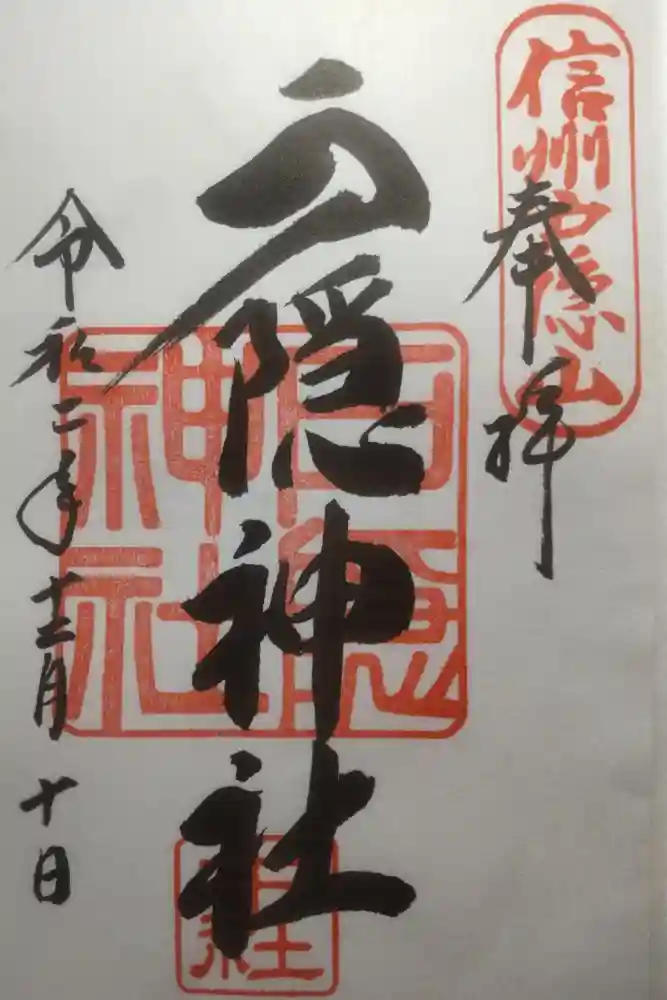 信州戸隠山
奉拝
戸隠神社
戸隠神社
令和二年十二月十日